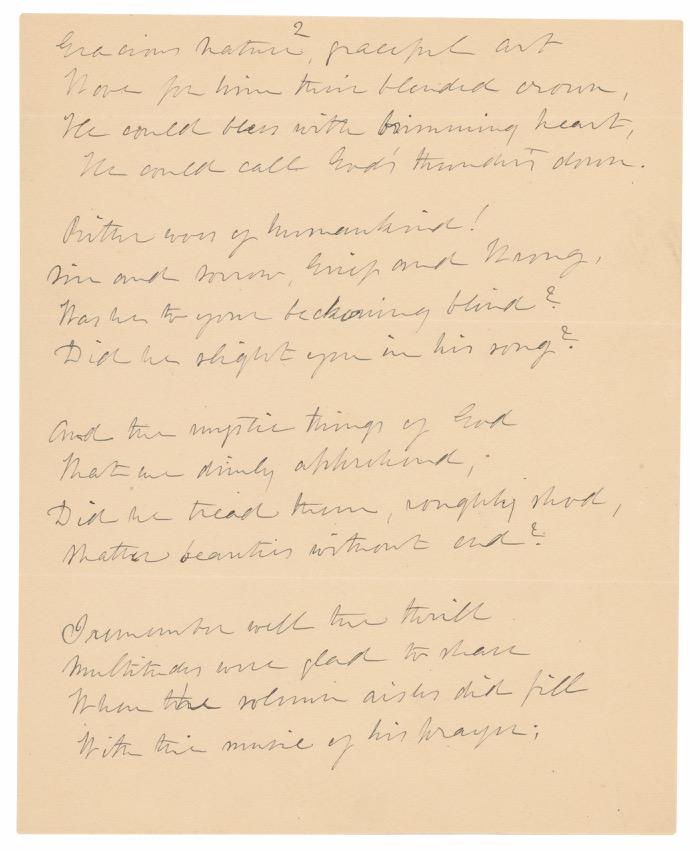 2
Gracious nature, graceful art
Wove for him their blended crown,
He could bless with brimming heart,
He could call God's thunders down.
Bitter woes of humankind!
Sin and sorrow, Grief and Wrong,
Was he to your beckoning blind?
Did he slight you in his song?
And the mystic things of God
That we dimly apprehend,
Did he tread them, roughly shod,
Shatter beauties without end?
I remember well the thrill
Multitudes were glad to share
When the solemn aisles did fill
With the music of his prayer;